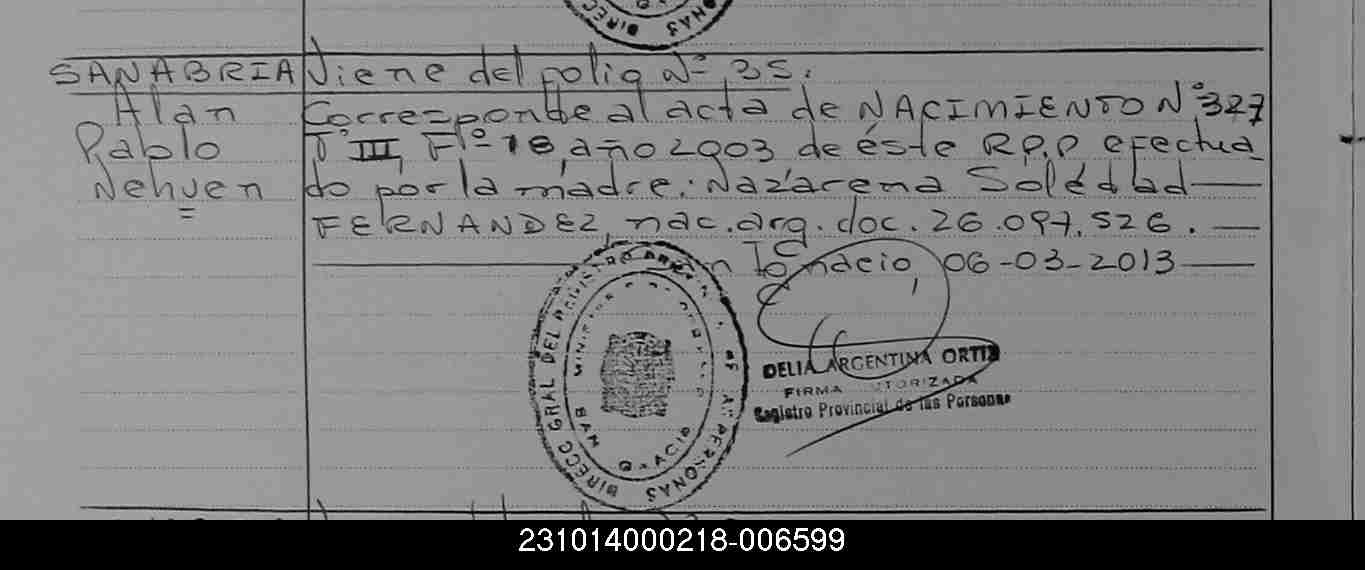 SANABRIA Viene del folio Nº 35.
Alan Corresponde al acta de NACIMIENTO Nº 327
Pablo Tº III, Fº 18, año 2003 de éste R.P.P efectua
Nehuen do por la madre: Nazarena Soledad
FERNANDEZ, nac. arg. doc. 26.097.526.
06-03-2013
DIRECC GRAL DEL REGISTRO
PERSONAS
SAN
DELIA ARGENTINA ORTIZ
FIRMA AUTORIZADA
Registro Provincial de las Personas
231014000218-006599